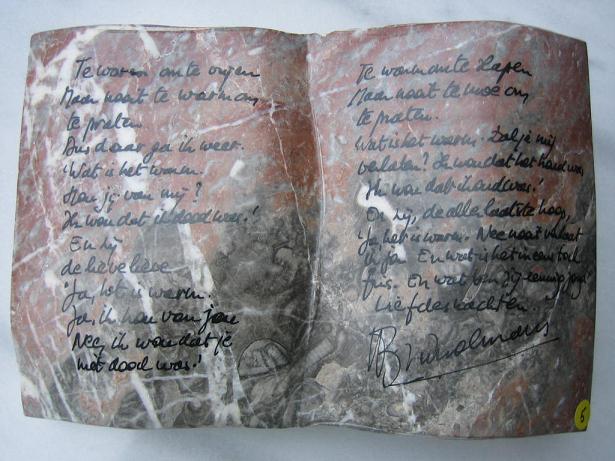 Te warm om te vrijen
Maar nooit te warm om
te praten.
Dus daar ga ik weer.
'Wat is het warm.
Hou je van mij?
Ik wou dat ik dood was.'
En hij
de lieve lieve
'Ja, het is warm.
Ja, ik hou van jou
Nee, ik wou dat je
niet dood was.'
Te warm om te slapen
Maar nooit te moe om
te praten.
Wat is het warm. Zal je mij
verlaten? Ik wou dat het koud was
Ik wou dat ik oud was.'
En hij, de allerlaatste
'Ja het is warm. Nee nooit verlaat
ik jou. En wat is het ineens toch
fris. En wat ben jij eeuwig jong
Liefdesnachten.
5